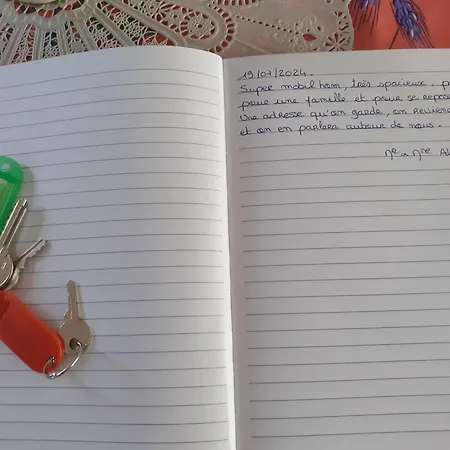 19/07/2024.
Super mobil hom, très spacieux.
pour une famille et pour se repose
Une adresse qu'on garde, on revien
et on en parlera autour de nous.